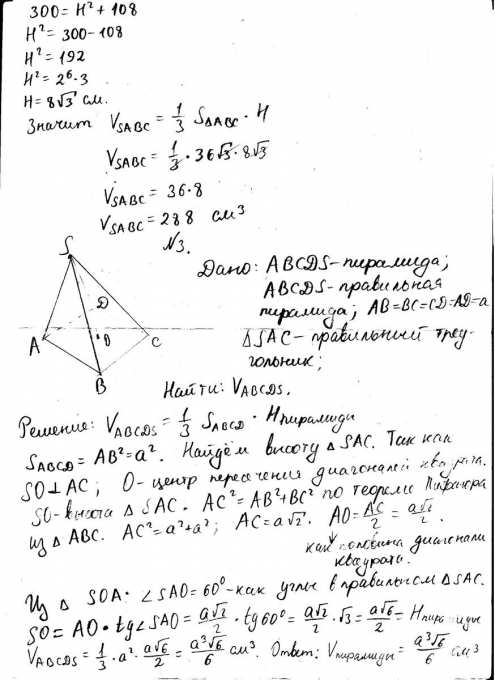 300 = H² + 108
H² = 300 - 108
H² = 192
H² = 2⁶·3
H = 8√3 см.
Значит V_SABC = 1/3 S_ΔABC · H
V_SABC = 1/3 · 36√3 · 8√3
V_SABC = 36·8
V_SABC = 288 см³
№3.
S
D
A
O
C
B
Дано: ABCDS – пирамида;
ABCDS – правильная
пирамида; AB=BC=CD=AD=a
ΔSAC – правильный треу-
гольник;
Найти: V_ABCDS.
Решение: V_ABCDS = 1/3 S_ABCD · H пирамиды
S_ABCD = AB² = a². Найдём высоту ΔSAC. Так как
SO⊥AC; O – центр пересечения диагоналей квадрата.
SO – высота ΔSAC. AC² = AB² + BC² по теореме Пифагора
из ΔABC. AC² = a² + a²; AC = a√2. AO = AC/2 = a√2/2.
как половина диагонали
квадрата.
Из ΔSOA. ∠SAO = 60° – как углы в правильном ΔSAC.
SO = AO · tg∠SAO = a√2/2 · tg60° = a√2/2 · √3 = a√6/2 = H пирамиды
V_ABCDS = 1/3 · a² · a√6/2 = a³√6/6 см³. Ответ: V пирамиды = a³√6/6 см³